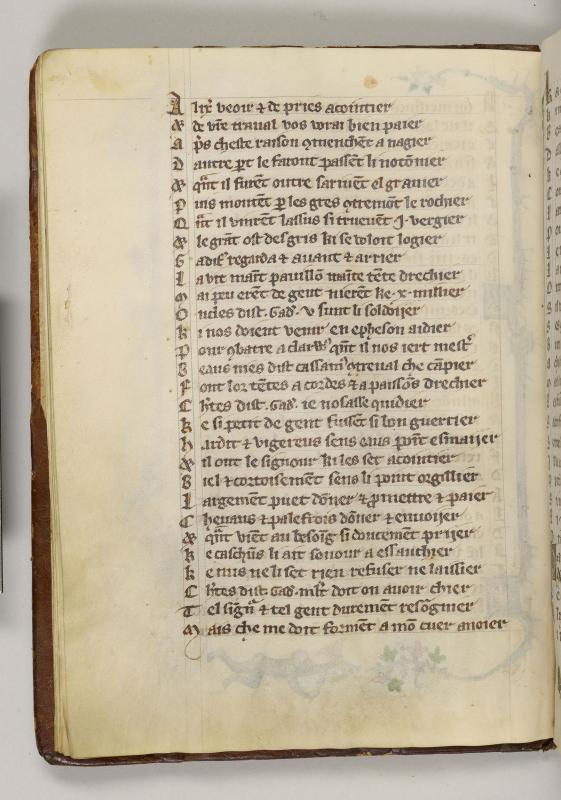 A lix̄ veoir ⁊ de pries acointier
⁊ de vr̄e traual vos vorai bien paier
A p̄s cheste raison q̄menchēt a nagier
D autre p̄t le firont passēt li notōnier
⁊ qn̄t il furēt outre sariuēt el grauier
P uis montēt p̄ les gres q̄tremōt le rochier
Q n̄t il vinrēt lassus si truevēt .j. vergier
⁊ le grāt ost des gris ki se voloit logier
G adif̄ regarda ⁊ auant ⁊ arrier
L a vit maīt pauillō mainte tēte drechier
M ai peu erēt de gent nierēt ke .x. millier
O ncles dist .Gad̄. v sunt li soldoijer
K i nos doient venir en epheson aidier
P our ɔbatre a clarꝰ qn̄t il nos iert mestr̄
B eaus nies dist cassamꝰ q̄treual che cāpier
F ont lor tētes a cordes ⁊ a paissōs drechier
C h'tes dist .Gad̄. ie nosasse quidier
K e si petit de gent fuissēt si bon guerrier
H ardit ⁊ vigereus sens eaus poīt esmaijer
⁊ il ont le signour ki les set acointier
B iel ⁊ cortoisemēt sens li point orgillier
L argemēt puet dōner ⁊ p̄mettre ⁊ paier
C heuaus ⁊ palefrois dōner ⁊ enuoijer
⁊ qn̄t vient au besoīg si doucemēt prijer
K e caschūs li ait sonour a essauchier
K e nus ne li set rien refuser ne laissier
C h'tes dist .Gad̄. mlt̄ doit on auoir chier
T el sign̄ ⁊ tel gent durement resōgnier
M ais che me doit formēt a mō cuer anoier